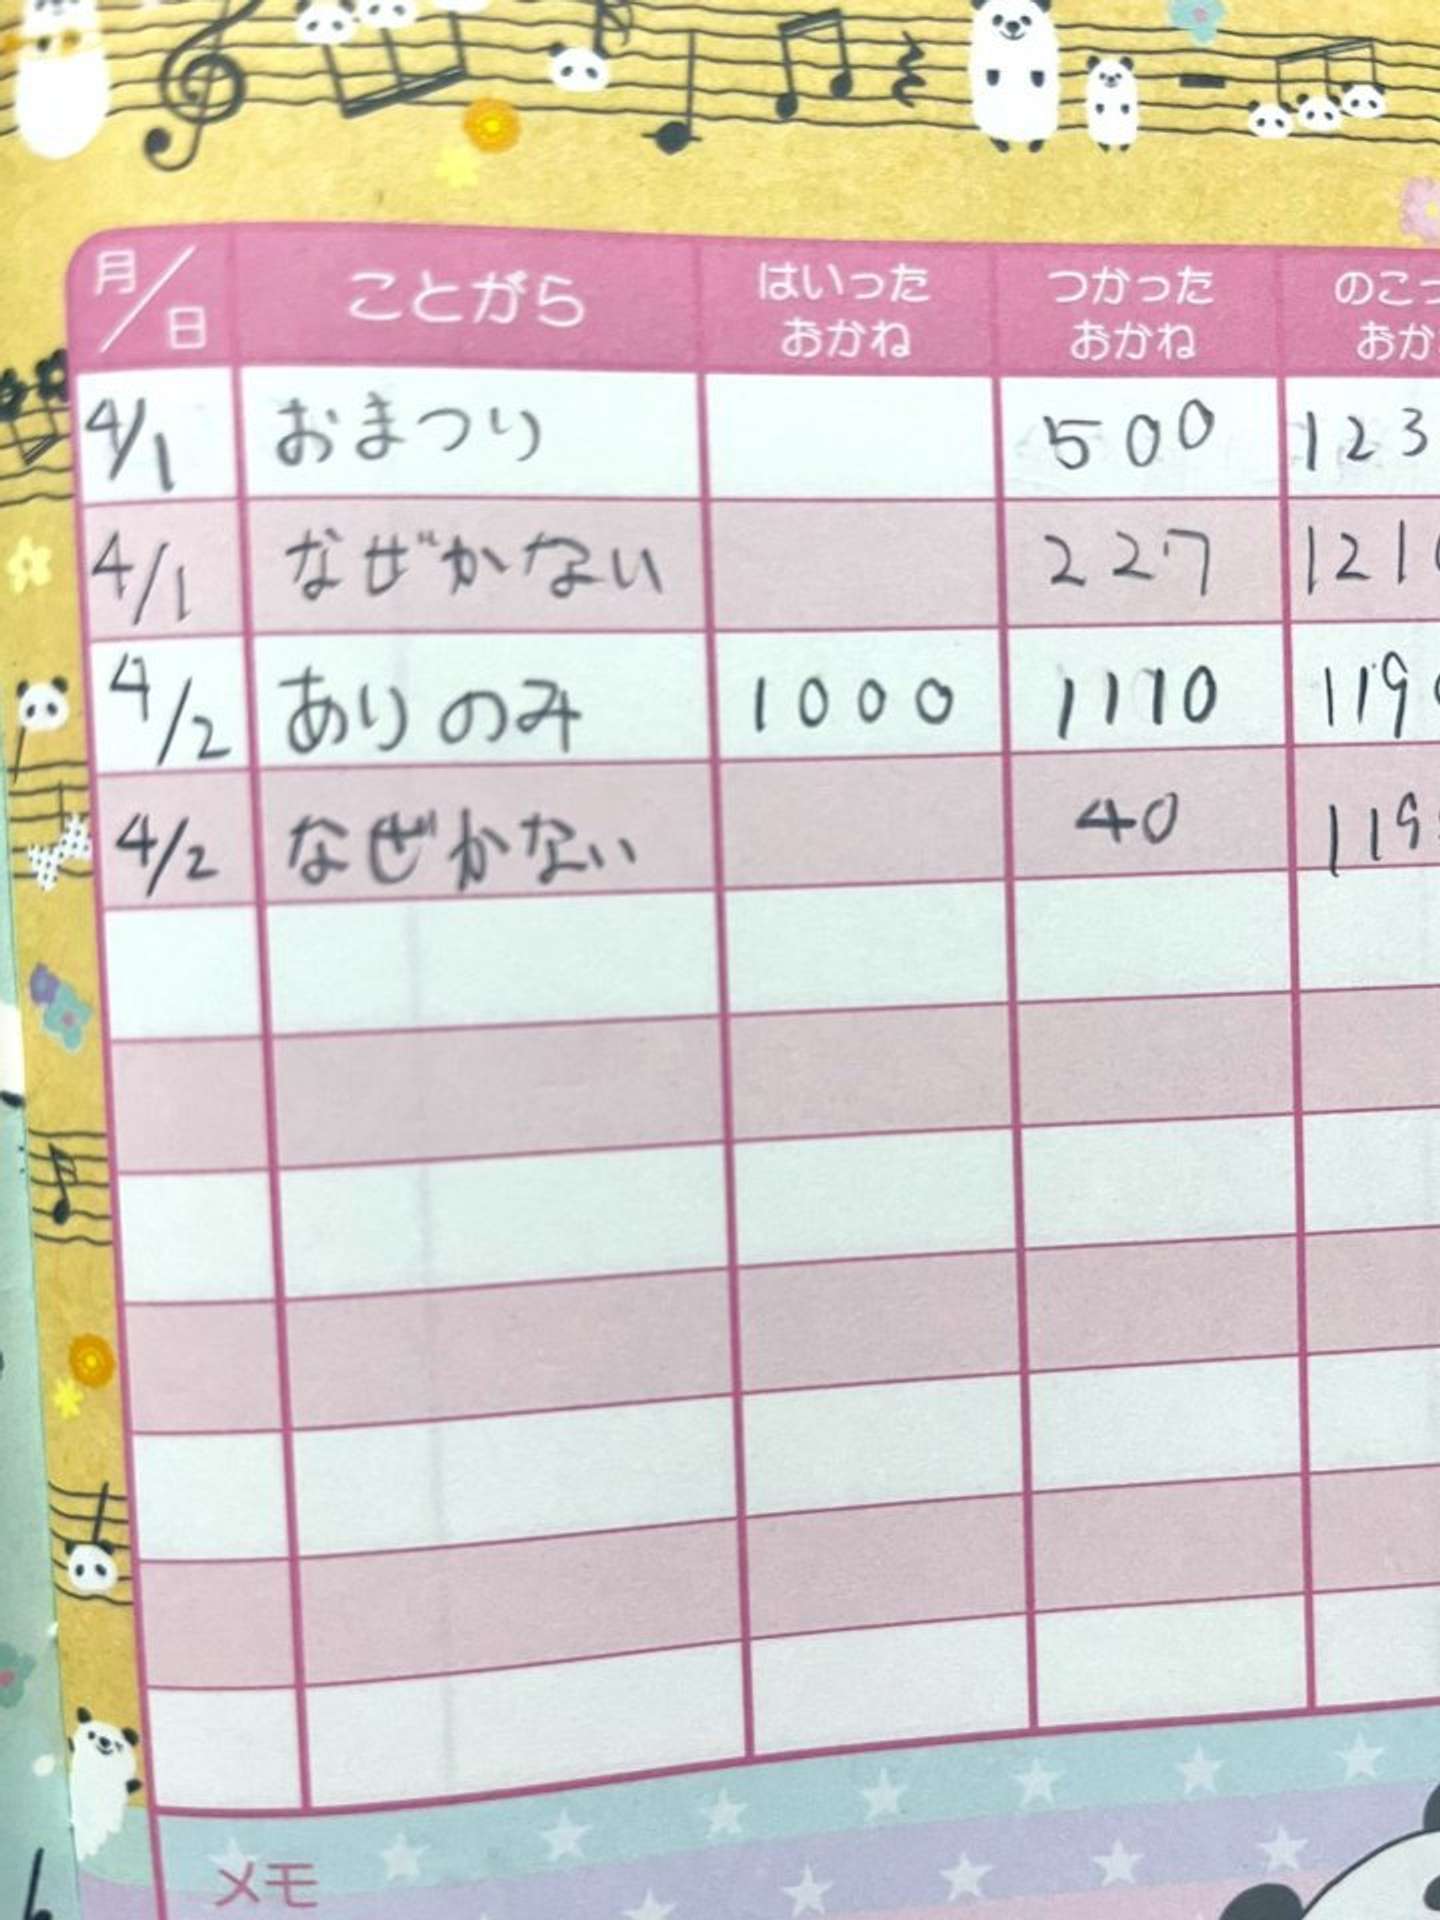 月/日 ことがら はいった おかね つかった おかね のこっ おか
4/1 おまつり 500 123
4/1 なぜかない 227 121
4/2 ありのみ 1000 1110 119
4/2 なぜかない 40 119
メモ